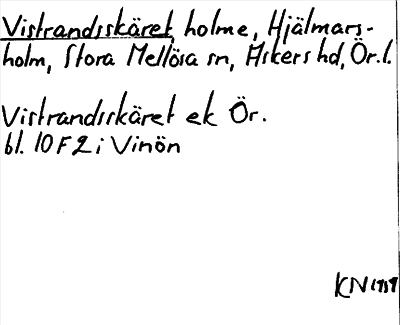 Vistrandsskäret, holme, Hjälmars-
holm, Stora Mellösa sn, Askers hd, Ör. l.
Vistrandsskäret ek Ör.
bl. 10 F 2 i Vinön
KN